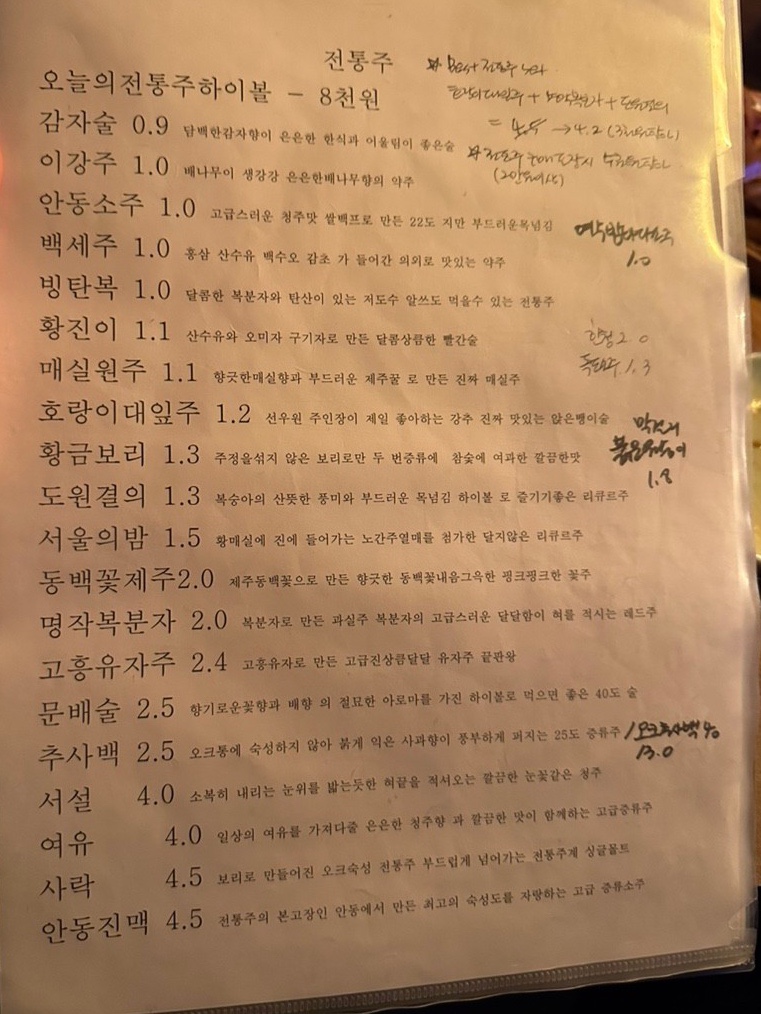 전통주
오늘의전통주하이볼 - 8천원
감자술 0.9 담백한감자향이 은은한 한식과 어울림이 좋은술
이강주 1.0 배나무이 생강강 은은한배나무향의 약주
안동소주 1.0 고급스러운 청주맛 쌀백프로 만든 22도 지만 부드러운목넘김
백세주 1.0 홍삼 산수유 백수오 감초 가 들어간 의외로 맛있는 약주
1.0
빙탄복 1.0 달콤한 복분자와 탄산이 있는 저도수 알쓰도 먹을수 있는 전통주
황진이 1.1 산수유와 오미자 구기자로 만든 달콤상큼한 빨간술
한청 2.0
매실원주 1.1 향긋한매실향과 부드러운 제주꿀 로 만든 진짜 매실주
1.3
호랑이대잎주 1.2 선우원 주인장이 제일 좋아하는 강추 진짜 맛있는 앉은뱅이술
막걸리
황금보리 1.3 주정을섞지 않은 보리로만 두 번증류에 참숯에 여과한 깔끔한맛
1.8
도원결의 1.3 복숭아의 산뜻한 풍미와 부드러운 목넘김 하이볼 로 즐기기좋은 리큐르주
서울의밤 1.5 황매실에 진에 들어가는 노간주열매를 첨가한 달지않은 리큐르주
동백꽃제주2.0 제주동백꽃으로 만든 향긋한 동백꽃내음그윽한 핑크핑크한 꽃주
명작복분자 2.0 복분자로 만든 과실주 복분자의 고급스러운 달달함이 혀를 적시는 레드주
고흥유자주 2.4 고흥유자로 만든 고급진상큼달달 유자주 끝판왕
문배술 2.5 향기로운꽃향과 배향 의 절묘한 아로마를 가진 하이볼로 먹으면 좋은 40도 술
추사백 2.5 오크통에 숙성하지 않아 붉게 익은 사과향이 풍부하게 퍼지는 25도 증류주 / 오크추사백 40
13.0
서설 4.0 소복히 내리는 눈위를 밟는듯한 혀끝을 적셔오는 깔끔한 눈꽃같은 청주
여유 4.0 일상의 여유를 가져다줄 은은한 청주향 과 깔끔한 맛이 함께하는 고급증류주
사락 4.5 보리로 만들어진 오크숙성 전통주 부드럽게 넘어가는 전통주계 싱글몰트
안동진맥 4.5 전통주의 본고장인 안동에서 만든 최고의 숙성도를 자랑하는 고급 증류소주